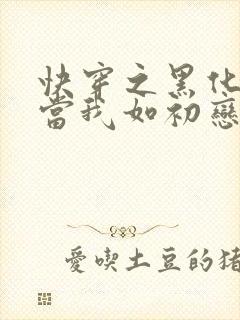 快穿之黑化
當我如初戀
愛喫土豆的猪